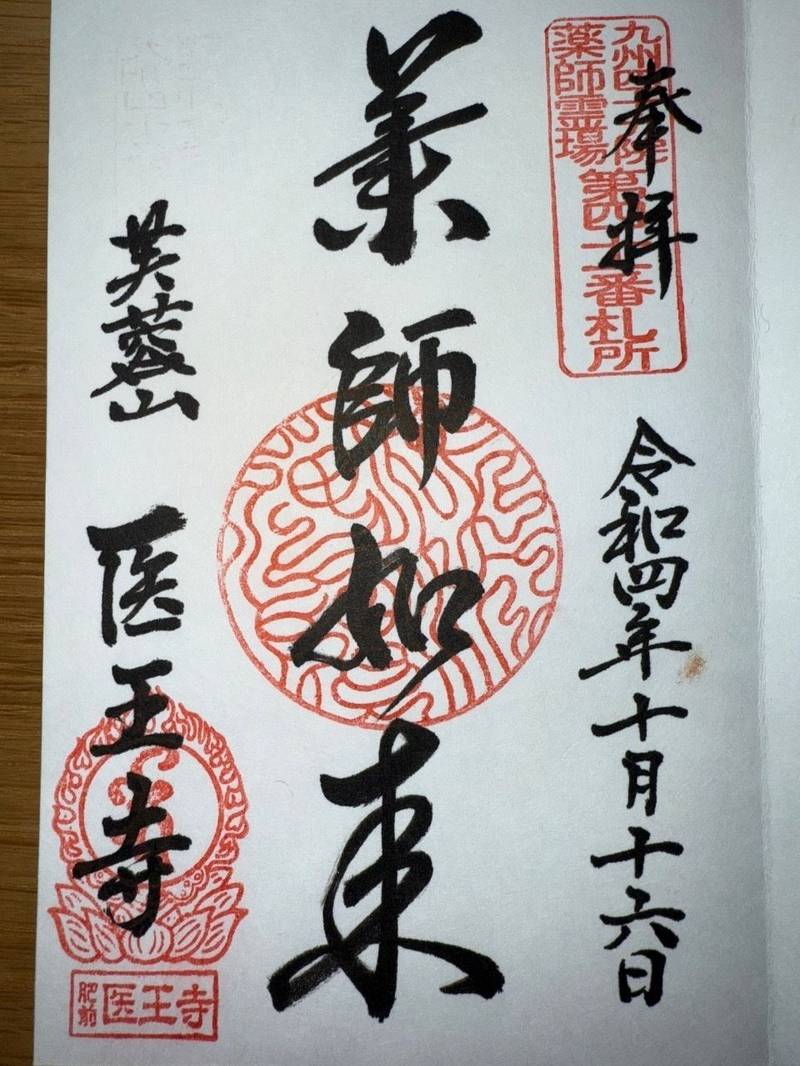 奉拝
九州四十九院
薬師霊場
第四十一番札所
令和四年十月十六日
薬師如来
芙蓉山 医王寺
肥前
医王寺